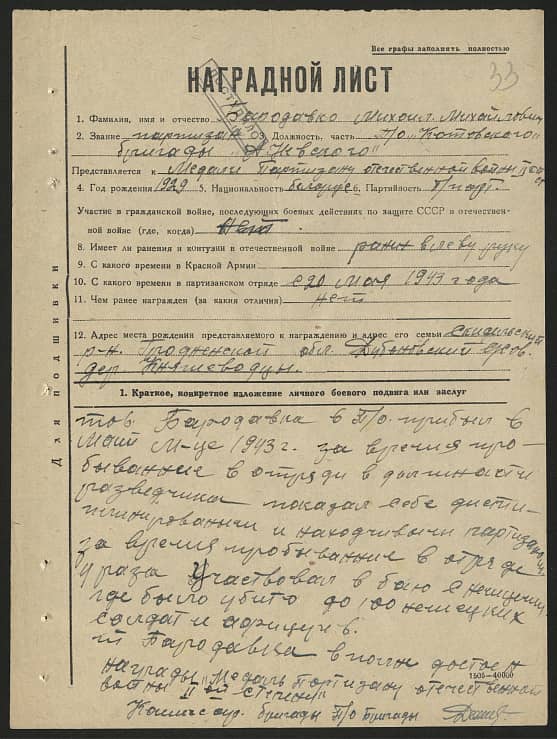 Все графы заполнить полностью
33
НАГРАДНОЙ ЛИСТ
1. Фамилия, имя и отчество Бародавко Михаил Михайлович
2. Звание партизан 3. Должность, часть П/О "Котовского"
бригады "Невского"
Представляется к Медали Партизану отечественной войны II
4. Год рождения 1929 5. Национальность белорус 6. Партийность б/парт
Участие в гражданской войне, последующих боевых действиях по защите СССР в отечествен-
ной войне (где, когда) Нет.
8. Имеет ли ранения и контузии в отечественной войне ранен в леву руку
9. С какого времени в Красной Армии
10. С какого времени в партизанском отряде с 20 Мая 1943 года
11. Чем ранее награжден (за какия отличия) нет
12. Адрес места рождения представляемого к награждению и адрес его семьи Скидельский
р-н. Гродненской обл. Дубновский с/сов.
дер. Княжеводцы.
Для подшивки
1. Краткое, конкретное изложение личного боевого подвига или заслуг
тов. Бародавка в П/о. прибыл в
Май М-це 1943 г. за время про-
быванние в отряди в должности
разведчика показал себе дисти-
плинированим и находчивым партизаном
за время пробыванние в отряде
4 раза Участвовал в бою с немцами
где было убито до 100 немецких
солдат и афицир в.
т Бародавка вполне достоен
награды "Медаль Партизану отечественной
войны II ой степени"
1505—40000
бригады П/о Бригады